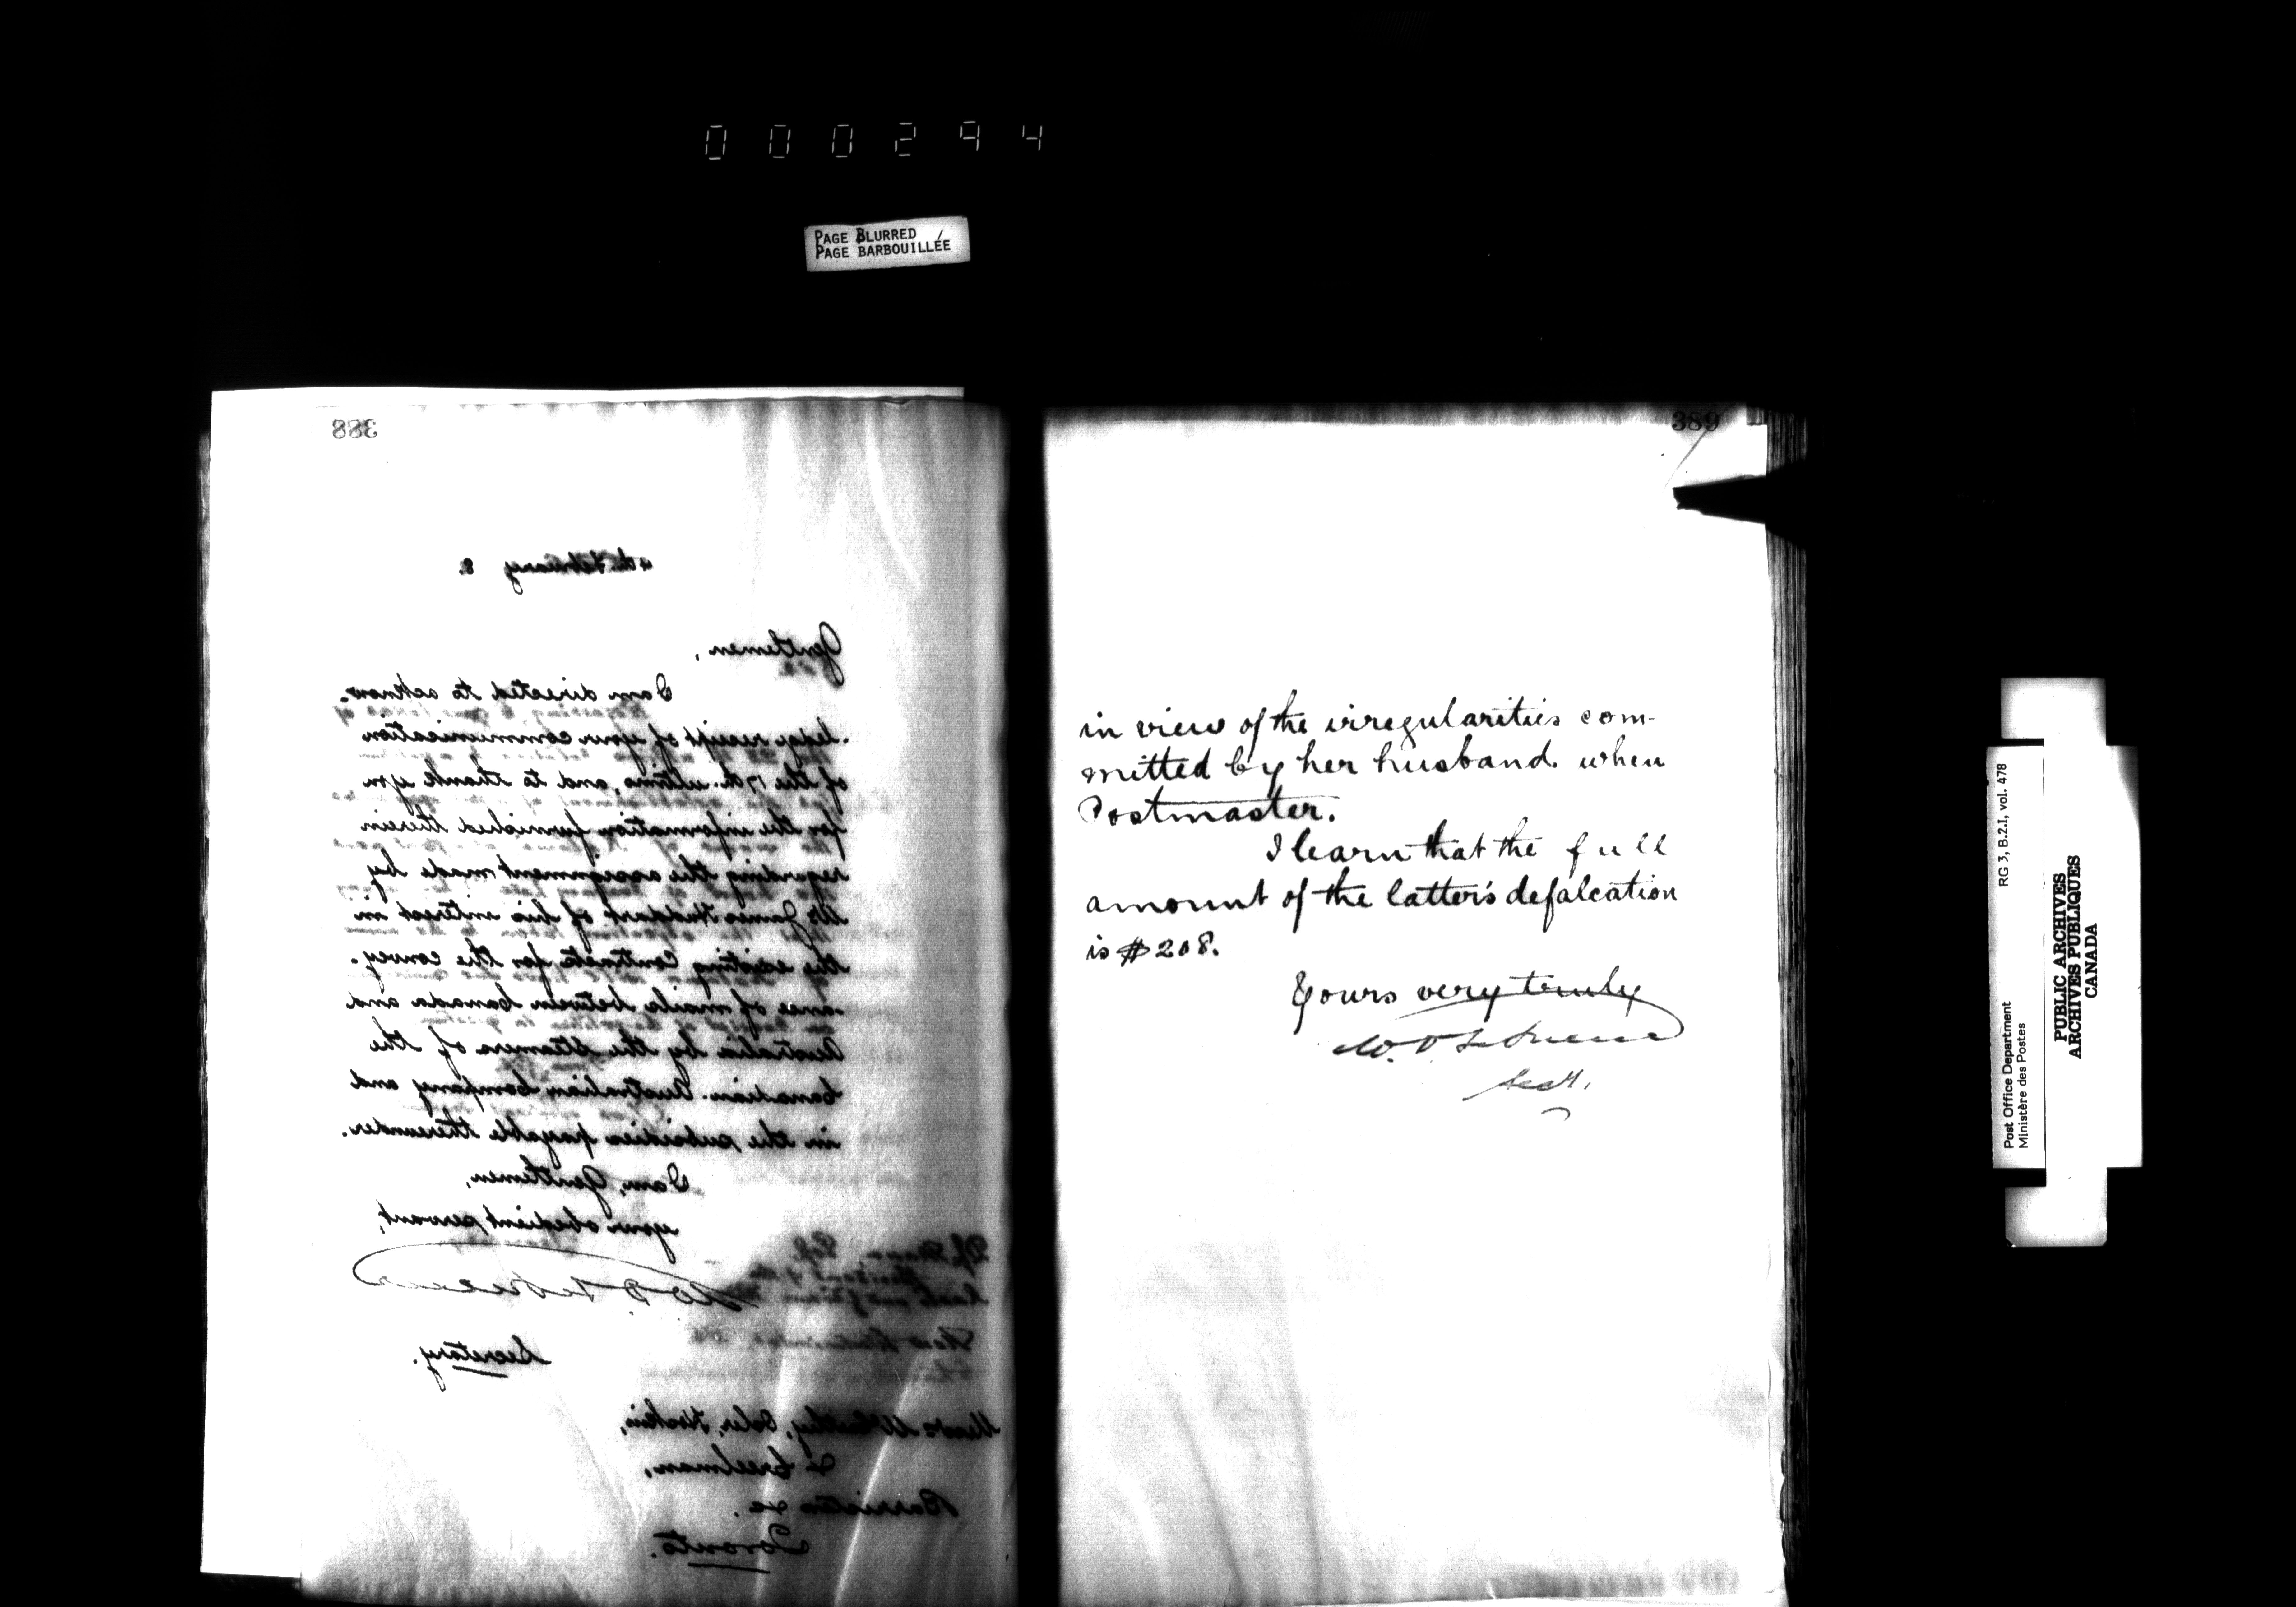 000294
PAGE BLURRED /
PAGE BARBOUILLÉE
388
4th February 8.
Gentlemen,
I am directed to acknow-
ledge receipt of your communication
of the 17th. ultimo, and to thank you
for the information furnished therein
regarding the assignment made by
Mr James Huddart of his interest in
the existing Contracts for the convey-
ance of mails between Canada and
Australia by the steamers of the
Canadian Australian Company and
in the subsidies payable thereunder.
I am, Gentlemen,
your obedient servant,
Secretary.
Messrs McCarthy, Osler, Hoskin,
& Creelman,
Barristers &c.
Toronto.
389
in view of the irregularities com-
mitted by her husband when
Postmaster.
I learn that the full
amount of the latter's defalcation
is $208.
Yours very truly
W. D. LeSueur
Secy.
RG 3, B.2.I, vol. 478
Post Office Department
Ministère des Postes
PUBLIC ARCHIVES
ARCHIVES PUBLIQUES
CANADA